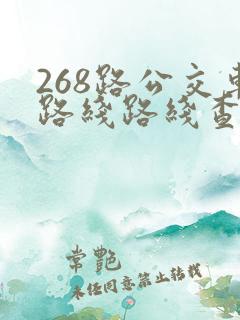 268路公交车
路线路线查
常艷
未任同意禁止转载